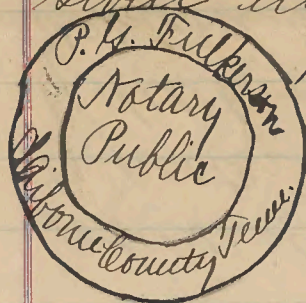 P. G. Fulkerson
Notary
Public
Claiborne County Tenn.